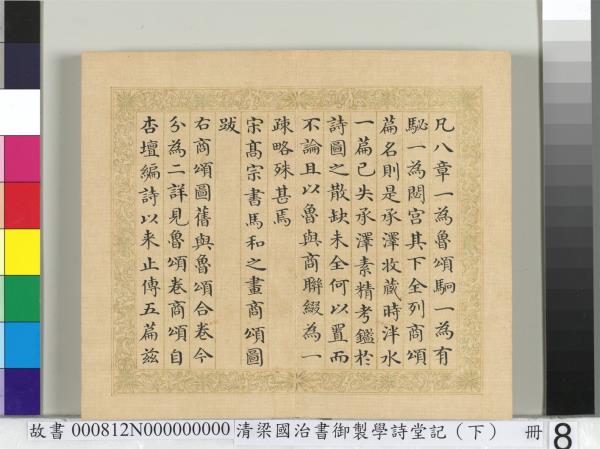 凡八章一為魯頌駉一為有
駜一為閟宮其下全列商頌
篇名則是承澤收藏時泮水
一篇已失承澤素精考鑑於
詩圖之散缺未全何以置而
不論且以魯與商聯綴為一
疎略殊甚焉
宋高宗書馬和之畫商頌圖
跋
右商頌圖舊與魯頌合卷今
分為二詳見魯頌卷商頌自
杏壇編詩以来止傳五篇茲
故書 000812N000000000 清梁國治書御製學詩堂記（下） 冊 8